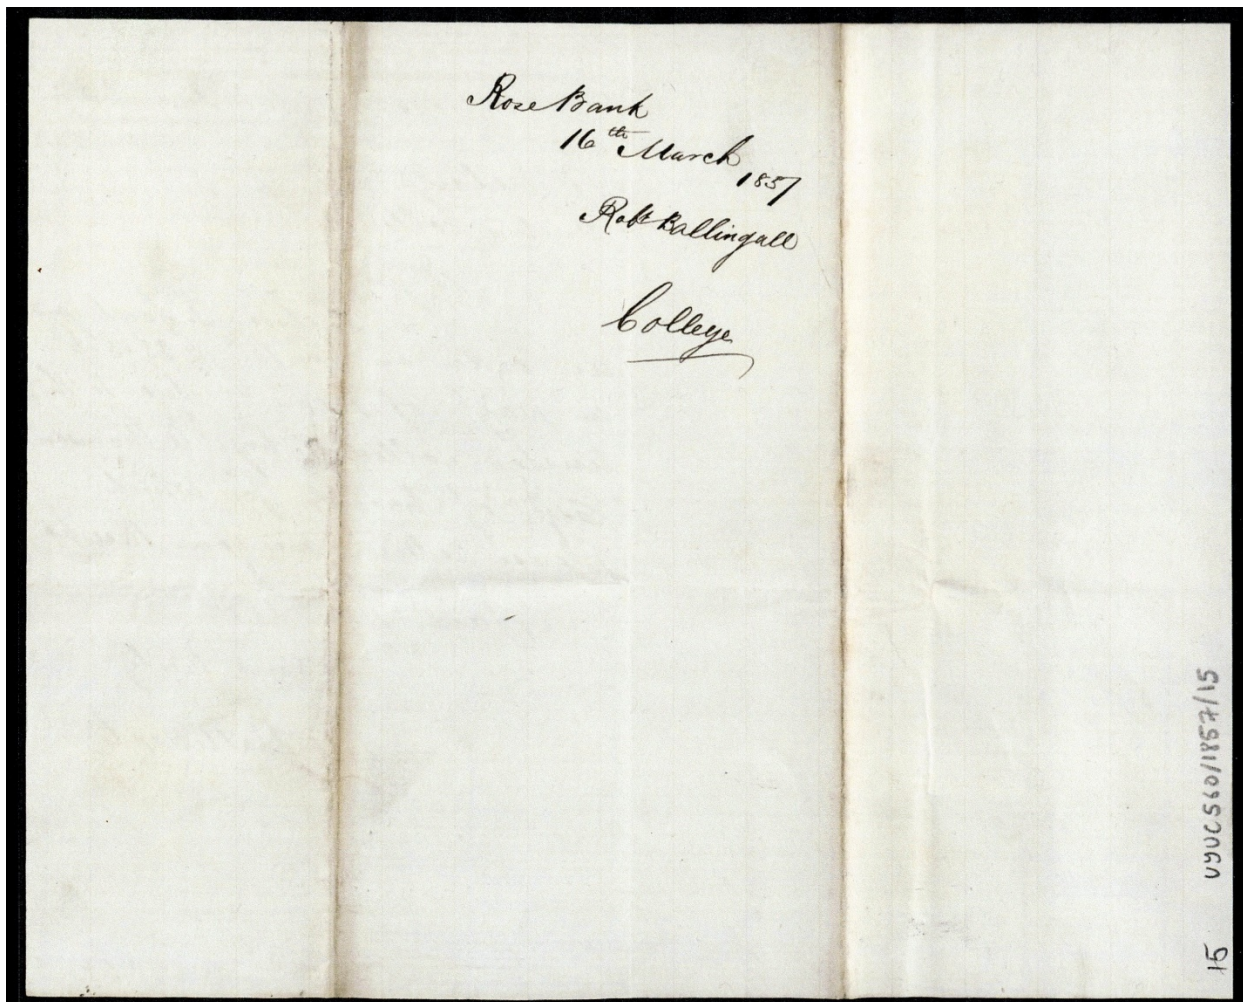 Rose Bank
16th March
1857
Robt Ballingall
College
UGUCS60/1857/15
15